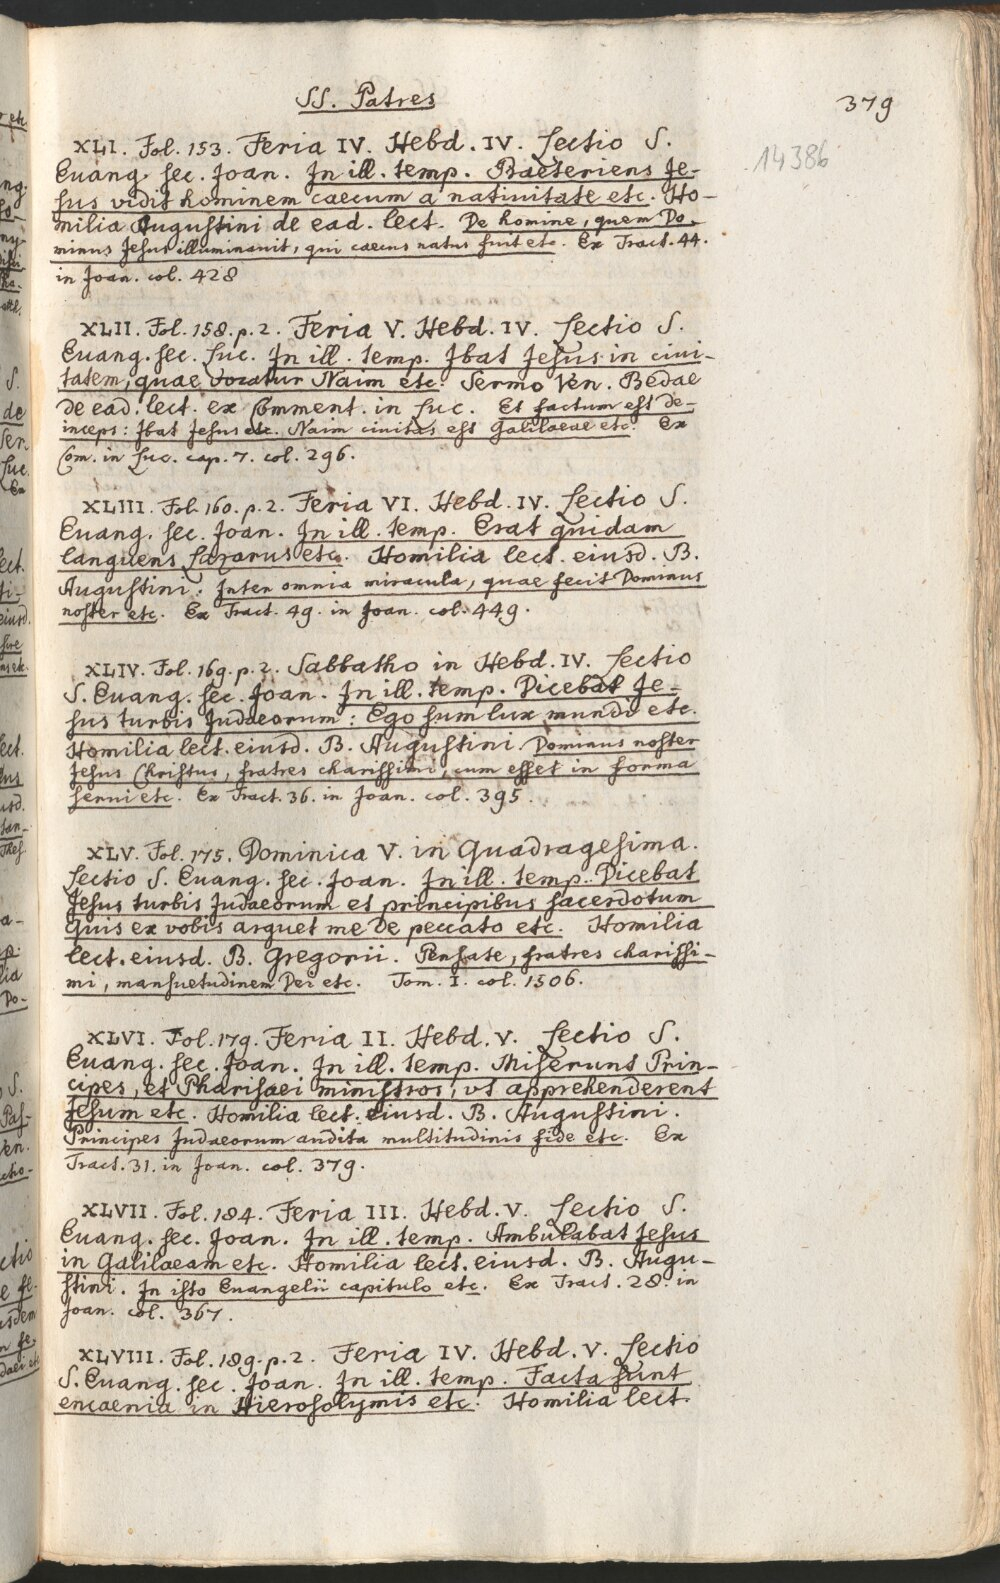 SS. Patres
379
14386
XLI. Fol. 153. Feria IV. Hebd. IV. Lectio S.
Euang. sec. Joan. In ill. temp. Praeteriens Je-
sus vidit hominem caecum a natiuitate etc. Ho-
milia Augustini de ead. lect. De homine, quem Do-
minus Jesus illuminauit, qui caecus natus fuit etc. Ex Tract. 44.
in Joan. col. 428
XLII. Fol. 158. p. 2. Feria V. Hebd. IV. Lectio S.
Euang. sec. Luc. In ill. temp. Ibat Jesus in ciui-
tatem, quae vocatur Naim etc. Sermo Ven. Bedae
de ead. lect. ex Comment. in Luc. Et factum est de-
inceps: Ibat Jesus etc. Naim ciuitas est Galilaeae etc. Ex
Com. in Luc. cap. 7. col. 296.
XLIII. Fol. 160. p. 2. Feria VI. Hebd. IV. Lectio S.
Euang. sec. Joan. In ill. temp. Erat quidam
languens Lazarus etc. Homilia lect. eiusd. B.
Augustini. Inter omnia miracula, quae fecit Dominus
noster etc. Ex Tract. 49. in Joan. col. 449.
XLIV. Fol. 169. p. 2. Sabbatho in Hebd. IV. Lectio
S. Euang. sec. Joan. In ill. temp. Dicebat Je-
sus turbis Judaeorum: Ego sum lux mundi etc.
Homilia lect. eiusd. B. Augustini. Dominus noster
Jesus Christus, fratres charissimi, cum esset in forma
serui etc. Ex Tract. 36. in Joan. col. 395.
XLV. Fol. 175. Dominica V. in Quadragesima.
Lectio S. Euang. sec. Joan. In ill. temp. Dicebat
Jesus turbis Judaeorum et principibus sacerdotum
Quis ex vobis arguet me de peccato etc. Homilia
lect. eiusd. B. Gregorii. Pensate, fratres charissi-
mi, mansuetudinem Dei etc. Tom. I. col. 1506.
XLVI. Fol. 179. Feria II. Hebd. V. Lectio S.
Euang. sec. Joan. In ill. temp. Miserunt Prin-
cipes, et Pharisaei ministros, vt apprehenderent
Jesum etc. Homilia lect. eiusd. B. Augustini.
Principes Judaeorum audita multitudinis fide etc. Ex
Tract. 31. in Joan. col. 379.
XLVII. Fol. 184. Feria III. Hebd. V. Lectio S.
Euang. sec. Joan. In ill. temp. Ambulabat Jesus
in Galilaeam etc. Homilia lect. eiusd. B. Augu-
stini. In isto Euangelii capitulo etc. Ex Tract. 28. in
Joan. col. 367.
XLVIII. Fol. 189. p. 2. Feria IV. Hebd. V. Lectio
S. Euang. sec. Joan. In ill. temp. Facta sunt
encaenia in Hierosolymis etc. Homilia lect.